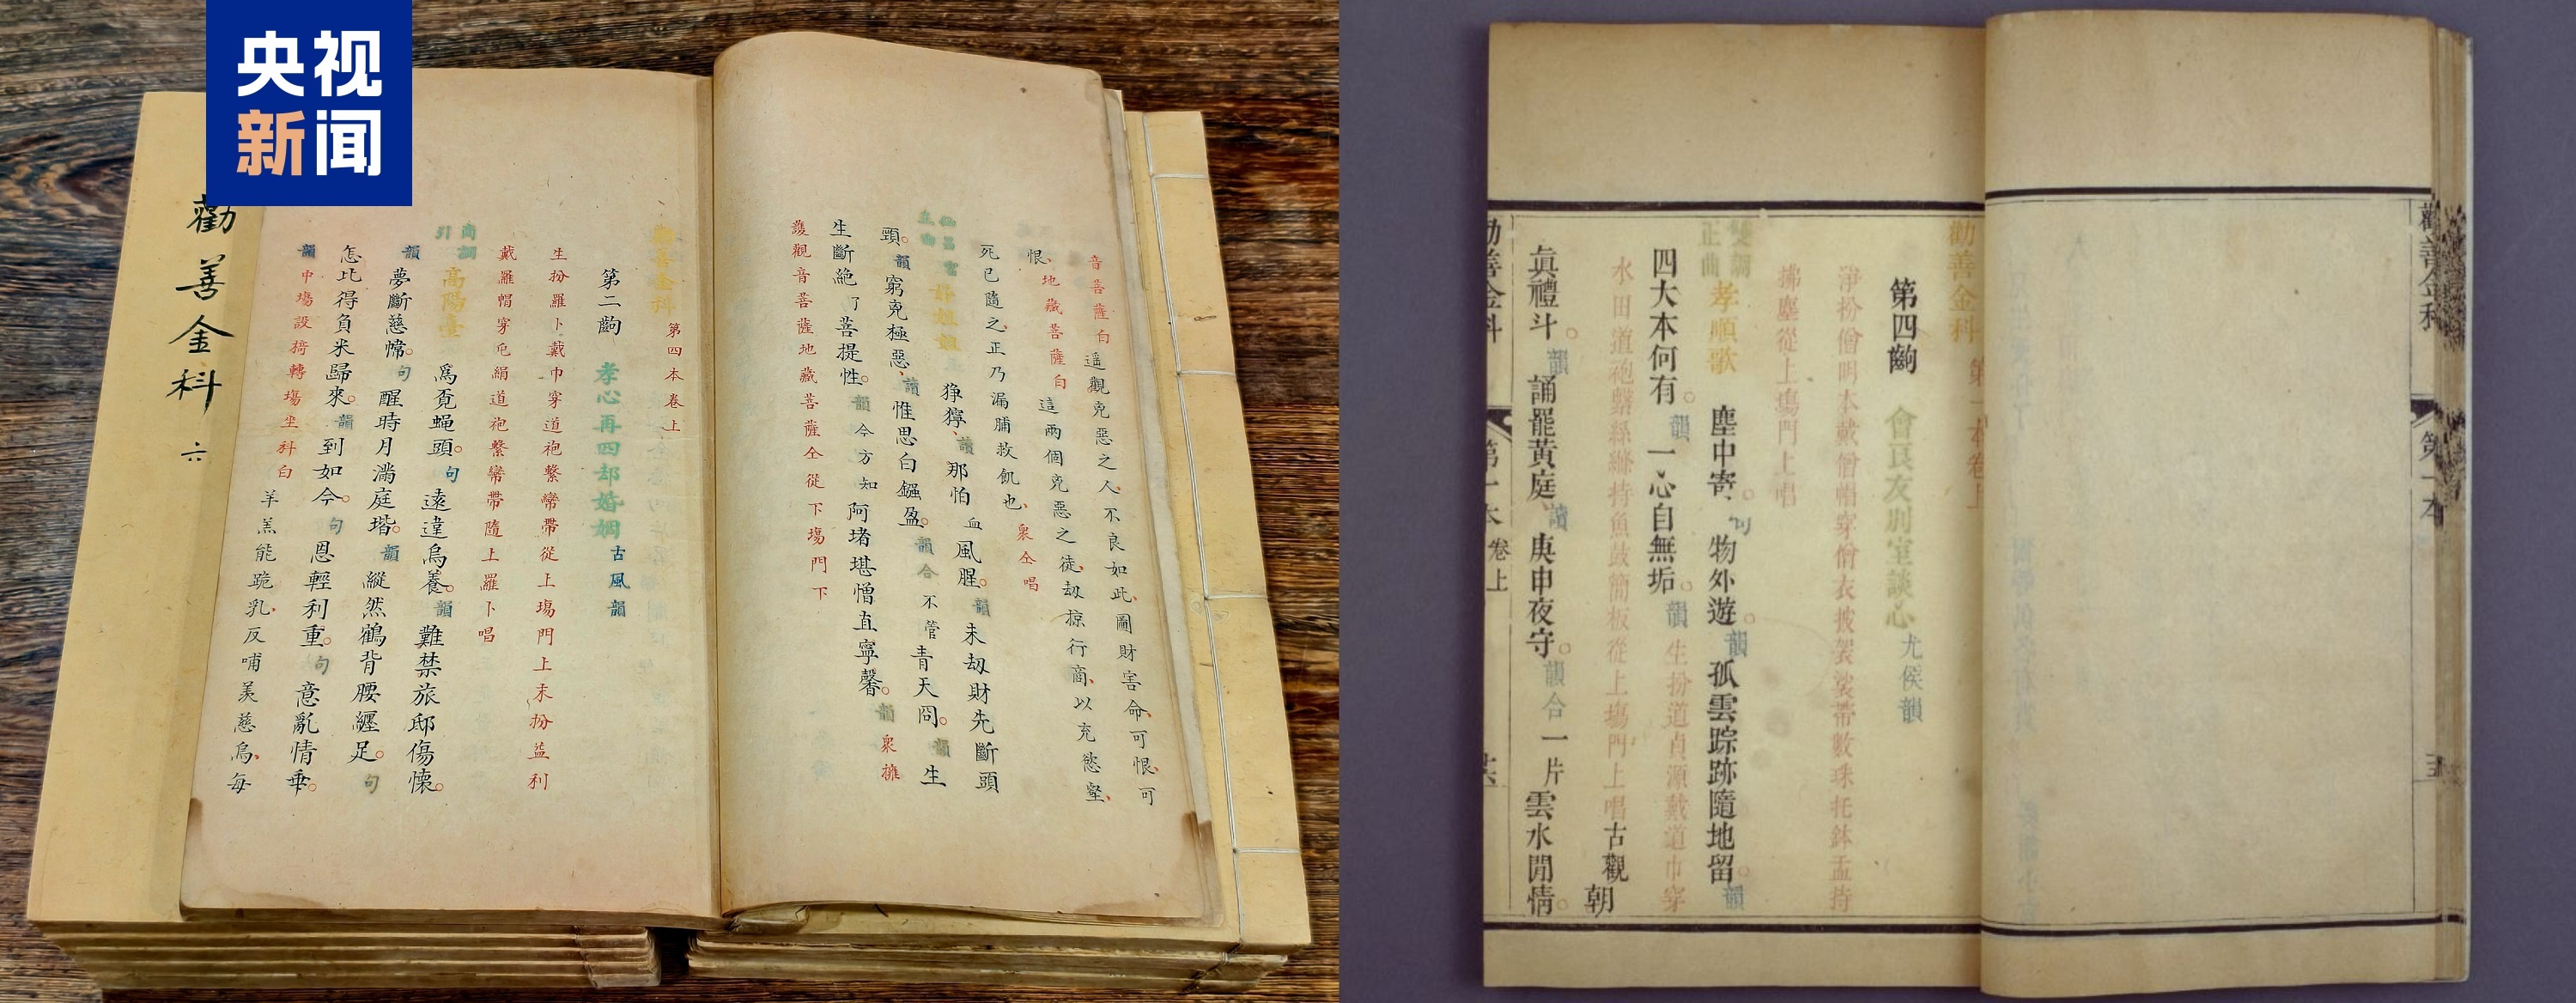 央视
新闻
勸善金科 六
音菩薩白 遥觀兇惡之人、不良如此、圖財害命、可恨、可
恨、地藏菩薩白 這兩個兇惡之徒、刼掠行商、以充慾壑、
死已隨之、正乃漏脯救飢也、衆仝唱
猙獰、讀那怕血風腥。韻未刼財先斷頭
頸。韻窮兇極惡、讀惟思白鏹盈。韻合不管青天冏。韻生
生斷絶了菩提性。韻今方知阿堵堪憎直寧馨。韻衆擁
護觀音菩薩地藏菩薩仝從下塲門下
勸善金科 第四本卷上
第二齣 孝心再四却婚姻 古風韻
生扮羅卜戴巾穿道袍繫鸞帶從上塲門上末扮益利
戴羅帽穿屯絹道袍繫鸞帶隨上羅卜唱
商調
引 高陽臺 爲覓蝇頭。句遠違烏養。韻難禁旅邸傷懷。
韻夢斷慈幃。句醒時月滿庭堦。韻縱然鶴背腰纒足。句
怎比得負米歸來。韻到如今。句恩輕利重。句意亂情乖。
韻中塲設椅轉塲坐科白 羊羔能跪乳、反哺羨慈烏、每
勸善金科
勸善金科 第一本卷上
第四齣 會良友別室談心 尤侯韻
淨扮僧明本戴僧帽穿僧衣披袈裟帶數珠托鉢盂持
拂塵從上塲門上唱
雙調
正曲 孝順歌 塵中寄。句物外遊。韻孤雲踪跡隨地留。韻
四大本何有。韻一心自無垢。韻生扮道貞源戴道巾穿
水田道袍繫絲縧持魚鼓簡板從上塲門上唱古觀朝
眞禮斗。韻誦罷黃庭、讀庚申夜守。韻合一片雲水閒情。
勸善金科 第一本卷上